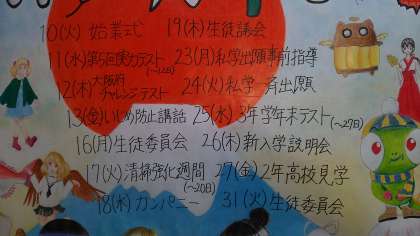 10(火) 始業式
11(水)第5回実力テスト(〜12日)
12(木)大阪府チャレンジテスト
13(金)いじめ防止講話
16(月)生徒委員会
17(火)清掃強化週間(〜20日)
18(水)カンパニー
19(木)生徒議会
23(月)私学出願事前指導
24(火)私学一斉出願
25(水)3年学年末テスト(〜27日)
26(木)新入学説明会
27(金)2年高校見学
31(火)生徒委員会